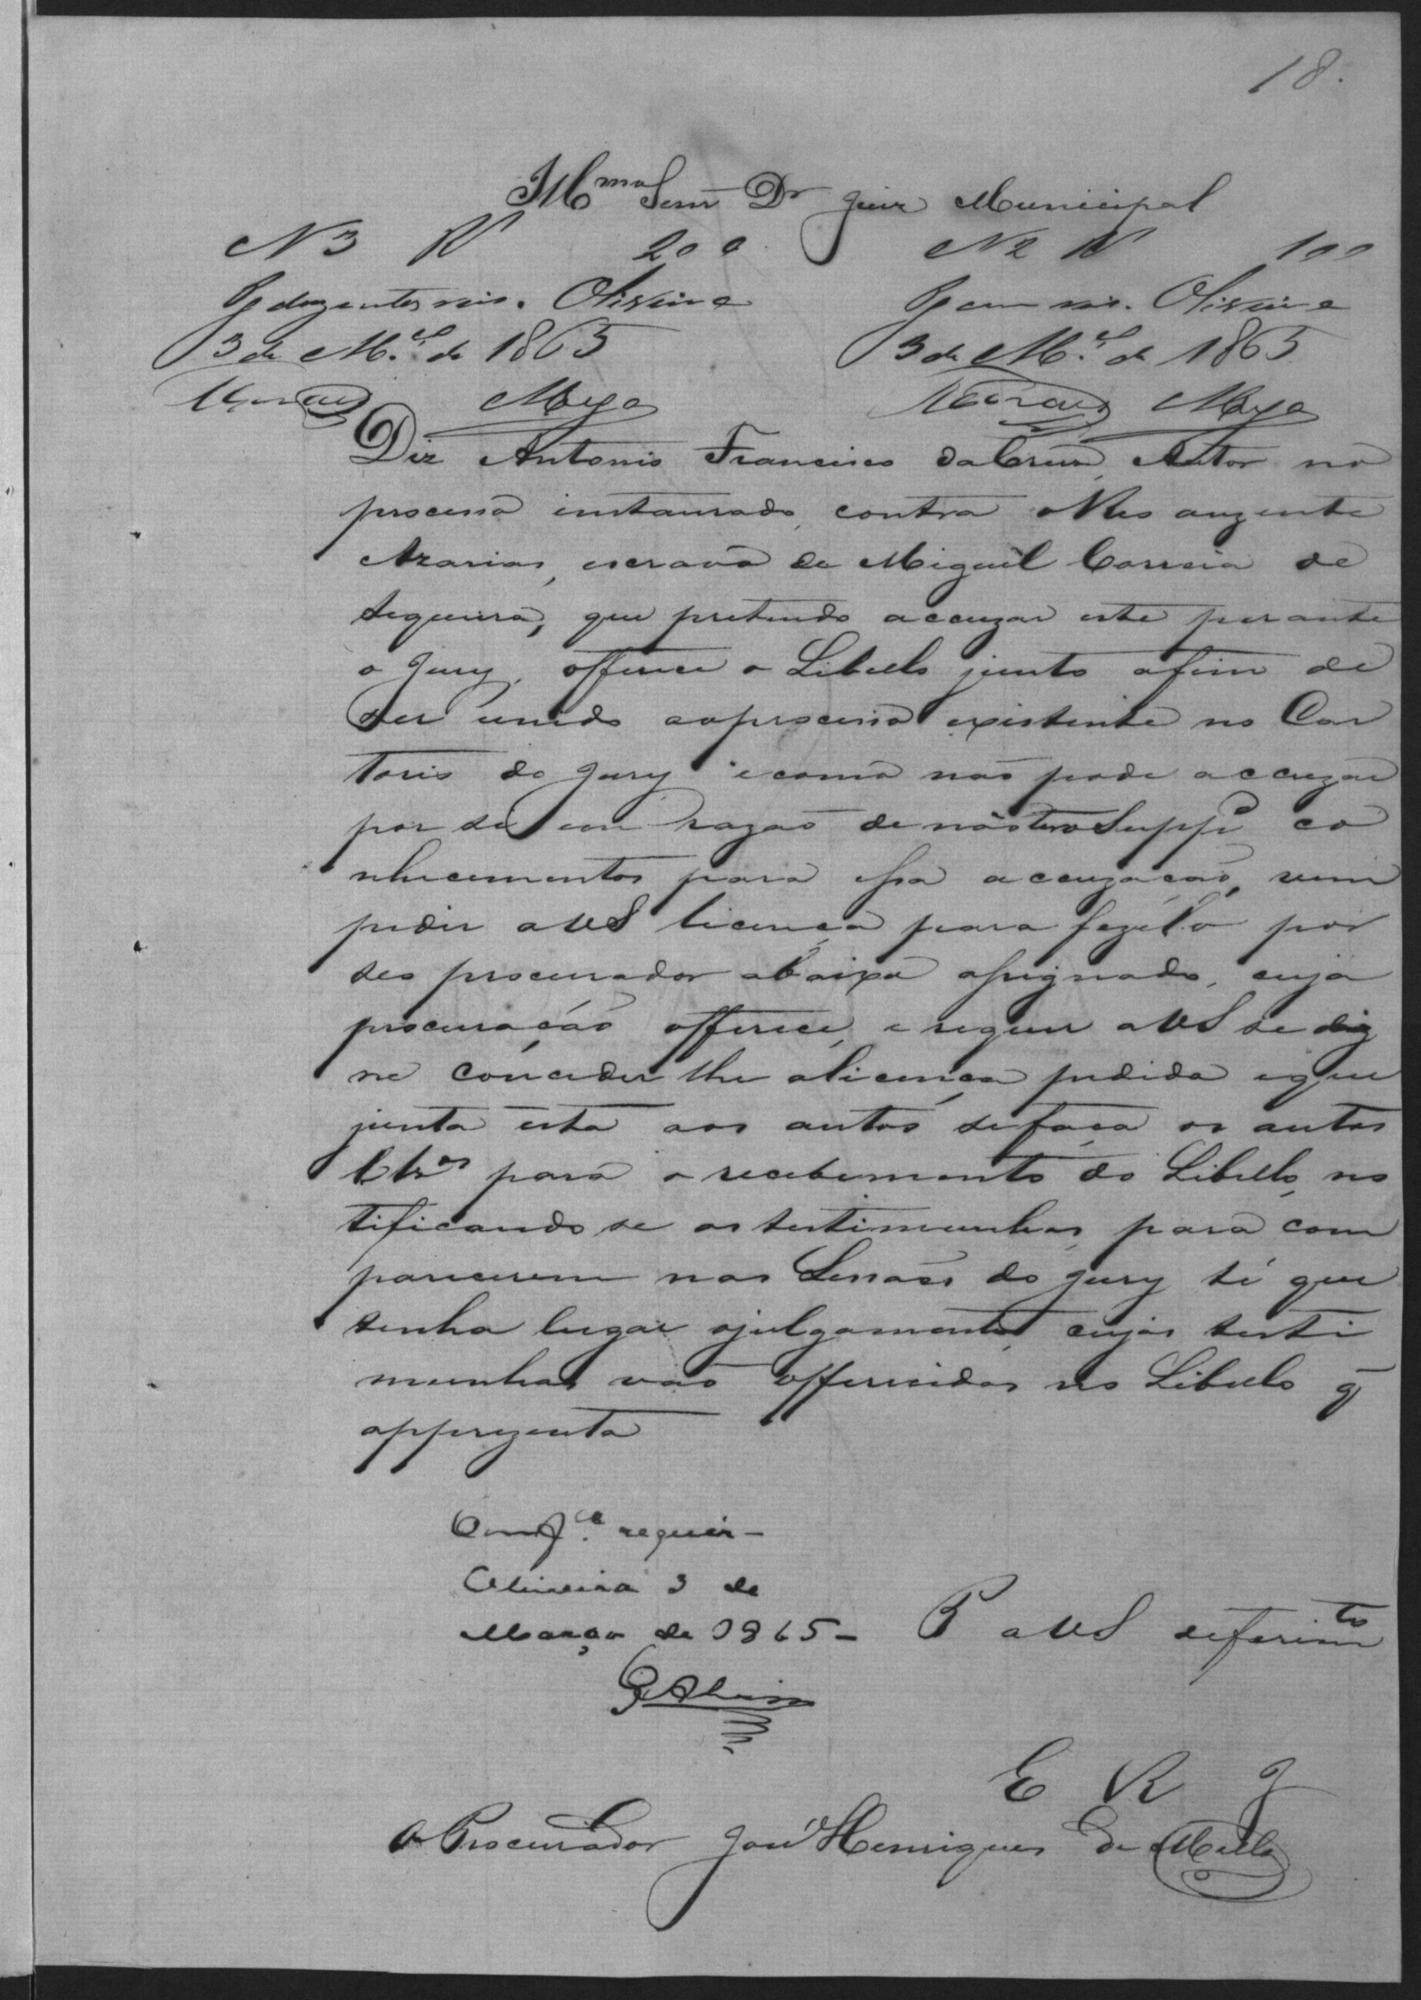 18.
Illmo Senr Dr Juiz Municipal
N 3 R 200 N 2 R 100
Pg duzentos reis. Oliveira Pg cem reis. Oliveira
3 de M.ço de 1865 3 de M.ço de 1865
Moraes Moraes
Diz Antonio Francisco da Crus, Autor no
processo instaurado, contra o Reo auzente
Azarias, escravo de Miguel Correia de
Sequeira, que pretendo accuzar este perante
o Jury, offerece o Libello junto afim de
ser unido ao processo existente no Car
torio do Jury e como não pode accuzar
por si em razão de não ter o Suppe co
nhecimentos para essa accuzação, vem
pedir a VS licença para fazelo por
seo procurador abaixo assignado, cuja
procuração offerece, e requer a VS se dig
ne conceder lhe a licença pedida e que
junta esta aos autos se faça os autos
Clzos para o recebimento do Libello, no
tificando se as testimunhas para com
parecerem nas Sessões do Jury té que
tenha lugar o julgamento, cujas testi
munhas vão offerecidas no Libello q
apprezenta
Como requer -
Oliveira 3 de
Março de 1865 - P a VS deferimto
E R J
O Procurador José Henriques de Mello